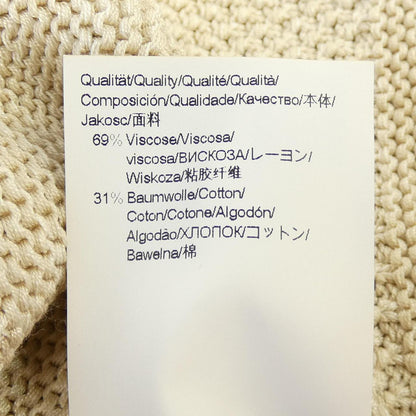 Qualität/Quality/Qualité/Qualità/
Composición/Qualidade/Качество/本体/
Jakosc/面料
69% Viscose/Viscosa/
viscosa/ВИСКОЗА/レーヨン/
Wiskoza/粘胶纤维
31% Baumwolle/Cotton/
Coton/Cotone/Algodón/
Algodão/ХЛОПОК/コットン/
Bawelna/棉